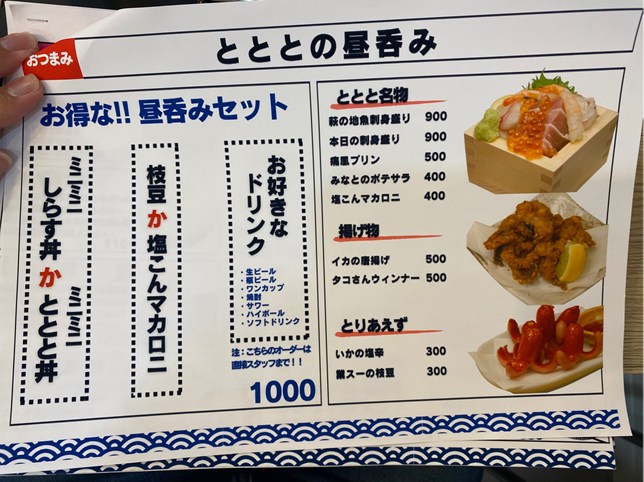 おつまみ
とととの昼呑み
お得な!! 昼呑みセット
ミニミニしらす丼 か ミニミニととと丼
枝豆 か 塩こんマカロニ
お好きなドリンク
・生ビール
・瓶ビール
・ワンカップ
・焼酎
・サワー
・ハイボール
・ソフトドリンク
注：こちらのオーダーは
直接スタッフまで！！
1000
ととと名物
萩の地魚刺身盛り 900
本日の刺身盛り 900
痛風プリン 500
みなとのポテサラ 400
塩こんマカロニ 400
揚げ物
イカの唐揚げ 500
タコさんウィンナー 500
とりあえず
いかの塩辛 300
業スーの枝豆 300